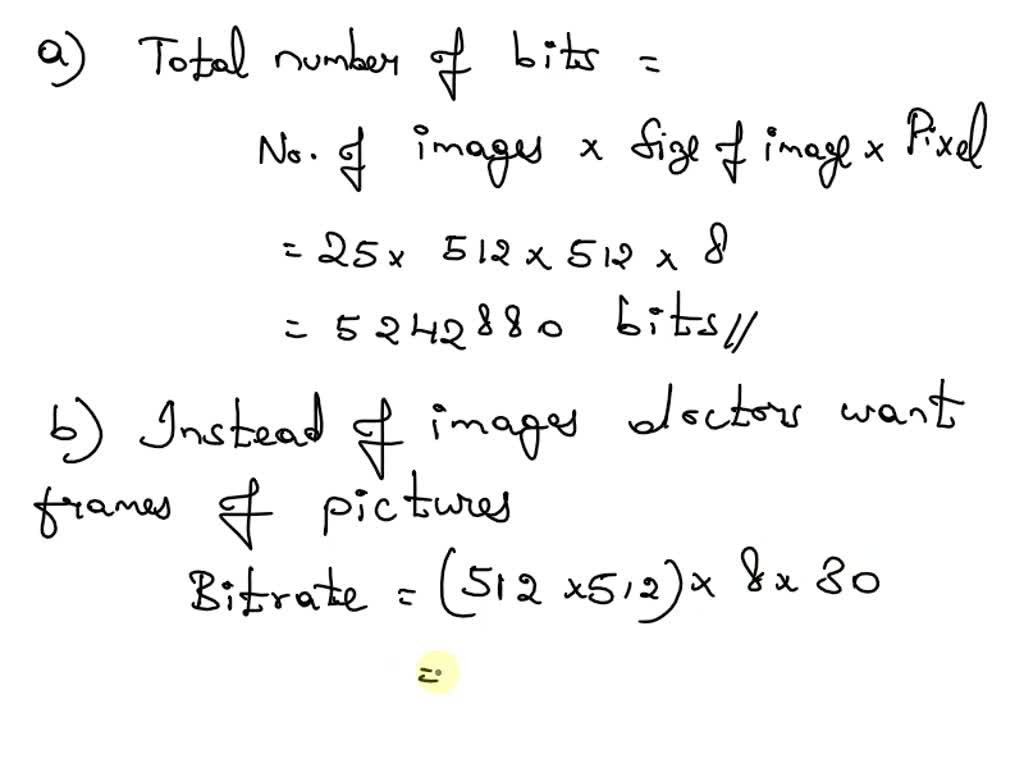 a) Total number of bits =
No. of images x Size of image x Pixel
= 25 x 512 x 512 x 8
= 5242880 bits//
b) Instead of images doctors want
frames of pictures
Bitrate = (512 x 512) x 8 x 30
=